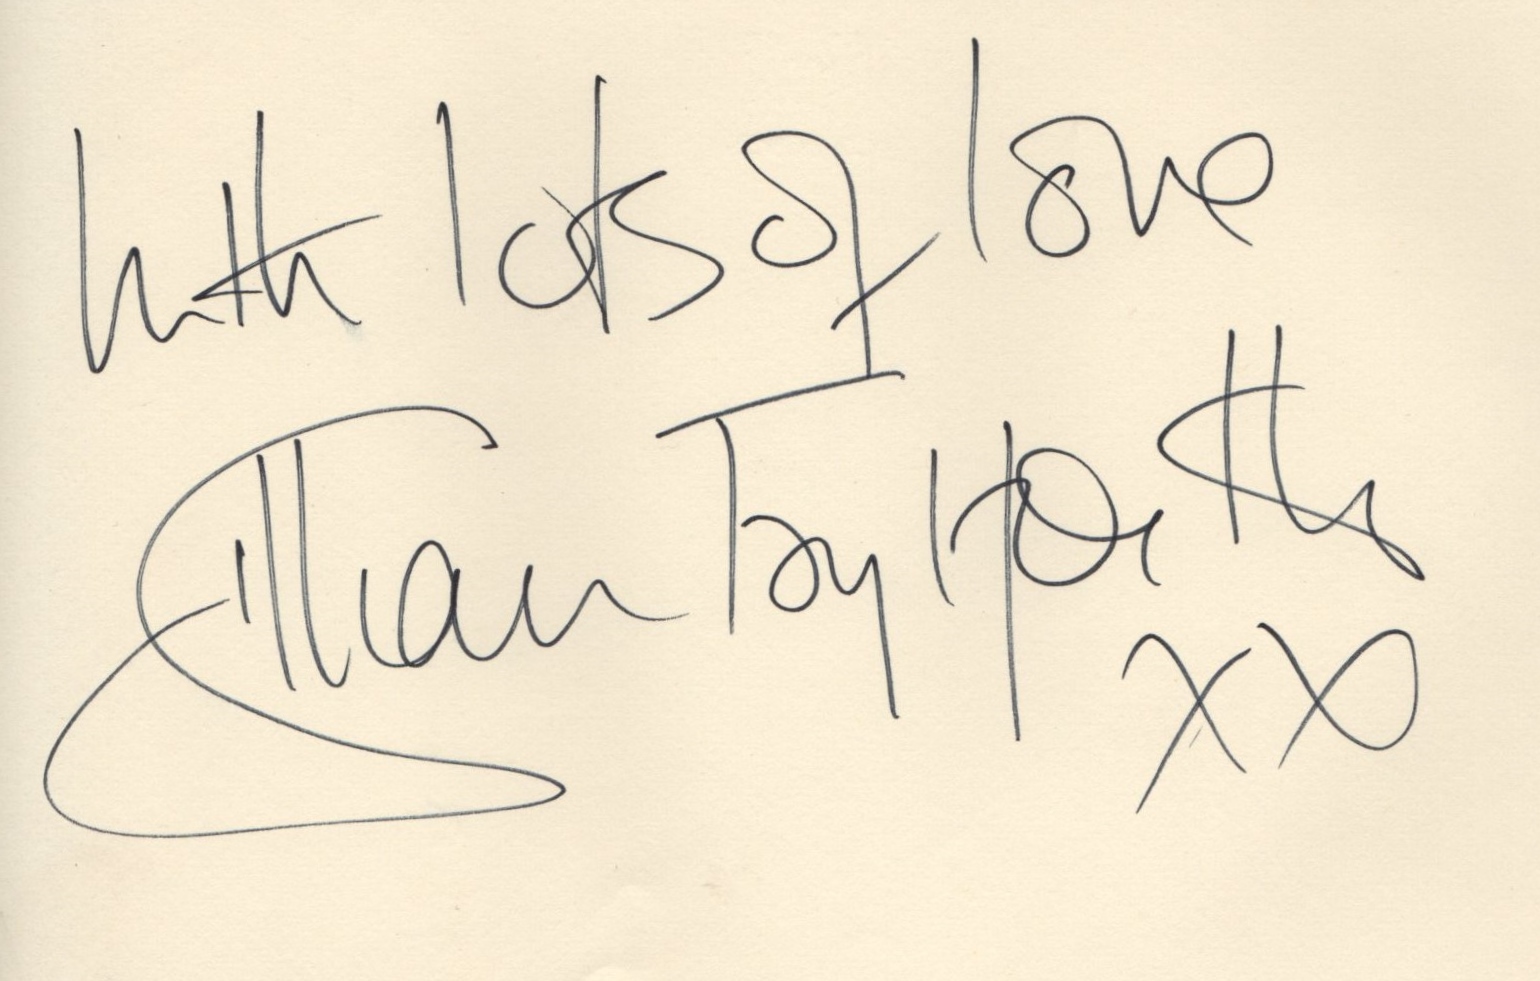 With lots of love
Gillian Taylforth
xx